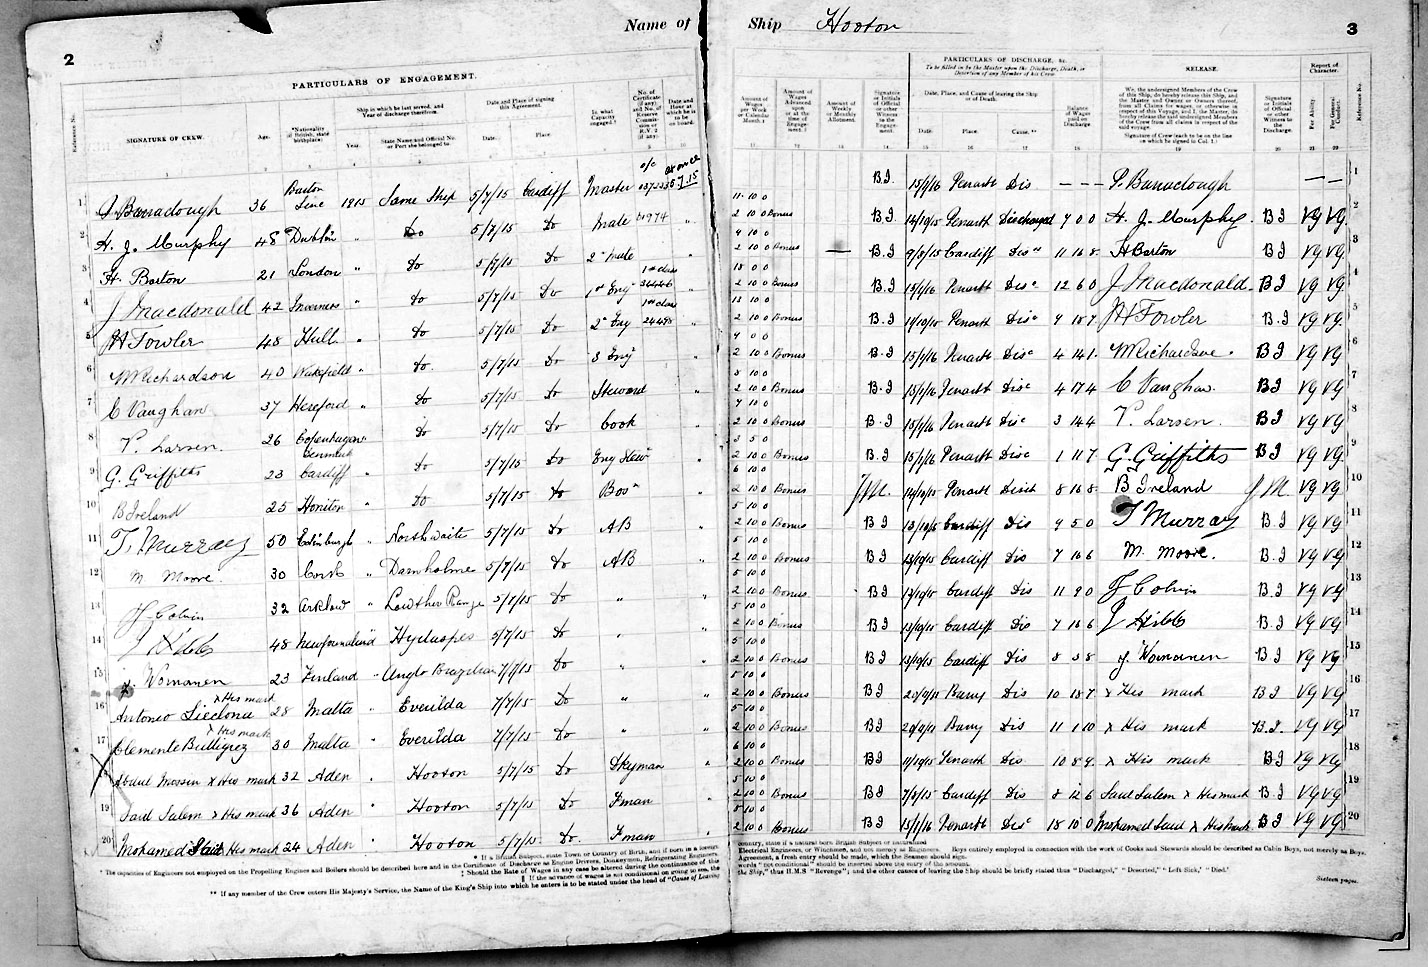 2
Name of Ship Hooton
3
PARTICULARS OF ENGAGEMENT.
PARTICULARS OF DISCHARGE, &c.
To be filled in by the Master upon the Discharge, Death, or Desertion of any Member of his Crew
RELEASE.
Report of Character.
Reference No.
SIGNATURE OF CREW.
Age.
*Nationality (if British, state birthplace)
Ship in which he last served, and Year of discharge therefrom.
Year.
State Name and Official No. or Port she belonged to
Date and Place of signing this Agreement.
Date.
Place.
In what Capacity engaged.†
No. of Certificate (if any) and No. of Reserve Commission or R.V 2 (if any).
Date and Hour at which he is to be on board.
Amount of Wages per Week or Calendar Month
Amount of Wages Advanced upon or at the time of Engagement.
Amount of Weekly or Monthly Allotment.
Signature or Initials of Official or other Witness to the Engagement.
Date, Place, and Cause of leaving the Ship or of Death.
Date.
Place
Cause.**
Balance of Wages paid on Discharge
We, the undersigned Members of the Crew of this Ship, do hereby release this Ship, and the Master and Owner or Owners thereof, from all Claims for wages, or otherwise in respect of this Voyage, and I, the Master, do hereby release the undersigned Members of the Crew from all claims in respect of the said voyage.
Signature of Crew (each to be on the line on which he signed in Col. 1.)
Signature or Initials of Official or other Witness to the Discharge.
For Ability
For General Conduct.
Reference No.
1 J. Barraclough 36 Barton Line 1915 Same Ship 5/7/15 Cardiff Master at once 5.7.15 B.J 15/1/16 Penarth Dis — — — J. Barraclough — — 1
2 H. J. Murphy 48 Dublin " Do 5/7/15 Do Mate " 11 10 0 2 10 0 Bonus B J 14/10/15 Penarth Discharged 7 0 0 H. J. Murphy B J VG VG 2
3 H. Barton 21 London " Do 5/7/15 Do 2nd Mate " 9 10 0 2 10 0 Bonus — B. J 9/8/15 Cardiff Disc 11 16 8 H Barton B J VG VG 3
4 J Macdonald 42 Inverness " Do 5/7/15 Do 1st Eng 1st class 36446 " 18 0 0 2 10 0 Bonus B. J 15/1/16 Penarth Disc 12 6 0 J Macdonald B J VG VG 4
5 JH Fowler 48 Hull " Do 5/7/15 Do 2nd Eng 1st class 24498 " 2 10 0 Bonus B. J Penarth Disc 9 18 7 JH Fowler B. J VG VG 5
6 W Richardson 40 Wakefield " Do 5/7/15 Do 3 Eng " 9 0 0 2 10 0 Bonus B. J 15/1/16 Penarth Disc 4 14 1 W Richardson B J VG VG 6
7 C Vaughan 37 Hereford " Do 5/7/15 Do Steward " 2 10 0 Bonus B. J 15/1/16 Penarth Disc 4 17 4 C Vaughan B J VG VG 7
8 V. Larsen 26 Copenhagen Denmark " Do 5/7/15 Do Cook " 7 10 0 2 10 0 Bonus B. J 15/1/16 Penarth Disc 3 14 4 V. Larsen B J VG VG 8
9 G. Griffiths 23 Cardiff " Do 5/7/15 Do Eng Stew " 3 5 0 2 10 0 Bonus B J 15/1/16 Penarth Disc 1 11 7 G. Griffiths B J VG VG 9
10 B Ireland 25 Honiton " Do 5/7/15 Do Bosn " 6 10 0 2 10 0 Bonus J.M. 14/10/15 Penarth Disch 8 16 8 B Ireland J M. VG VG 10
11 T. Murray 50 Edinburgh " Northwaite 5/7/15 Do AB " 5 10 0 2 10 0 Bonus B J 13/10/15 Cardiff Dis 9 5 0 T Murray B. J VG VG 11
12 M Moore 30 Cork " Darnholme 5/7/15 Do AB " 5 10 0 2 10 0 Bonus B J 13/10/15 Cardiff Dis 7 16 6 M. Moore. B. J VG VG 12
13 J Colvin 32 Arklow " Lowther Range 5/7/15 Do " " 5 10 0 2 10 0 Bonus B J 13/10/15 Cardiff Dis 11 9 0 J Colvin B. J VG VG 13
14 J Kibb 48 Newfoundland " Hydaspes 5/7/15 Do " " 5 10 0 2 10 0 Bonus B J 13/10/15 Cardiff Dis 7 16 6 J Kibb B. J VG VG 14
15 J. Womanen 23 Finland " Anglo Brazilian 7/7/15 Do " " 5 10 0 2 10 0 Bonus B J 13/10/15 Cardiff Dis 8 3 8 J. Womanen B J VG VG 15
16 Antonio Sicclona x His mark 28 Malta " Everilda 7/7/15 Do " " 5 10 0 2 10 0 Bonus B J Barry Dis 10 18 7 x His mark B J VG VG 16
17 Clemente Buttigieg x His mark 30 Malta " Everilda 7/7/15 Do " " 5 10 0 2 10 0 Bonus B J Barry Dis 11 1 10 x His mark B. J. VG VG 17
Abdul Mossin x His mark 32 Aden " Hooton 5/7/15 Do Dkyman " 6 10 0 2 10 0 Bonus B J Penarth Dis 10 8 9 x His mark B J VG VG 18
19 Said Salem x His mark 36 Aden " Hooton 5/7/15 Do Fman " 5 10 0 2 10 0 Bonus B J 7/8/15 Cardiff Dis 8 12 6 Said Salem x His mark B. J VG VG 19
20 Mohamed Said His mark 24 Aden " Hooton 5/7/15 Do. Fman " 2 10 0 Bonus B J 15/1/16 Penarth Disc 18 10 0 Mohamed Said x His mark B J VG VG 20
* If a British Subject, state Town or Country of Birth, and if born in a foreign country, state if a natural born British Subject or naturalised
† The capacities of Engineers not employed on the Propelling Engines and Boilers should be described here and in the Certificate of Discharge as Engine Drivers, Donkeymen, Refrigerating Engineers, Electrical Engineers, or Winchmen, and not merely as Engineers. Boys entirely employed in connection with the work of Cooks and Stewards should be described as Cabin Boys, not merely as Boys.
‡ Should the Rate of Wages in any case be altered during the continuance of the Agreement, a fresh entry should be made, which the Seamen should sign.
If the advance of wages is not conditional on going to sea, the words "not conditional" should be inserted above the entry of the amount.
** If any member of the Crew enters His Majesty's Service, the Name of the King's Ship into which he enters is to be stated under the head of "Cause of Leaving the Ship," thus H.M.S "Revenge"; and the other causes of leaving the Ship should be briefly stated thus "Discharged," "Deserted," "Left Sick," "Died."
Sixteen pages.